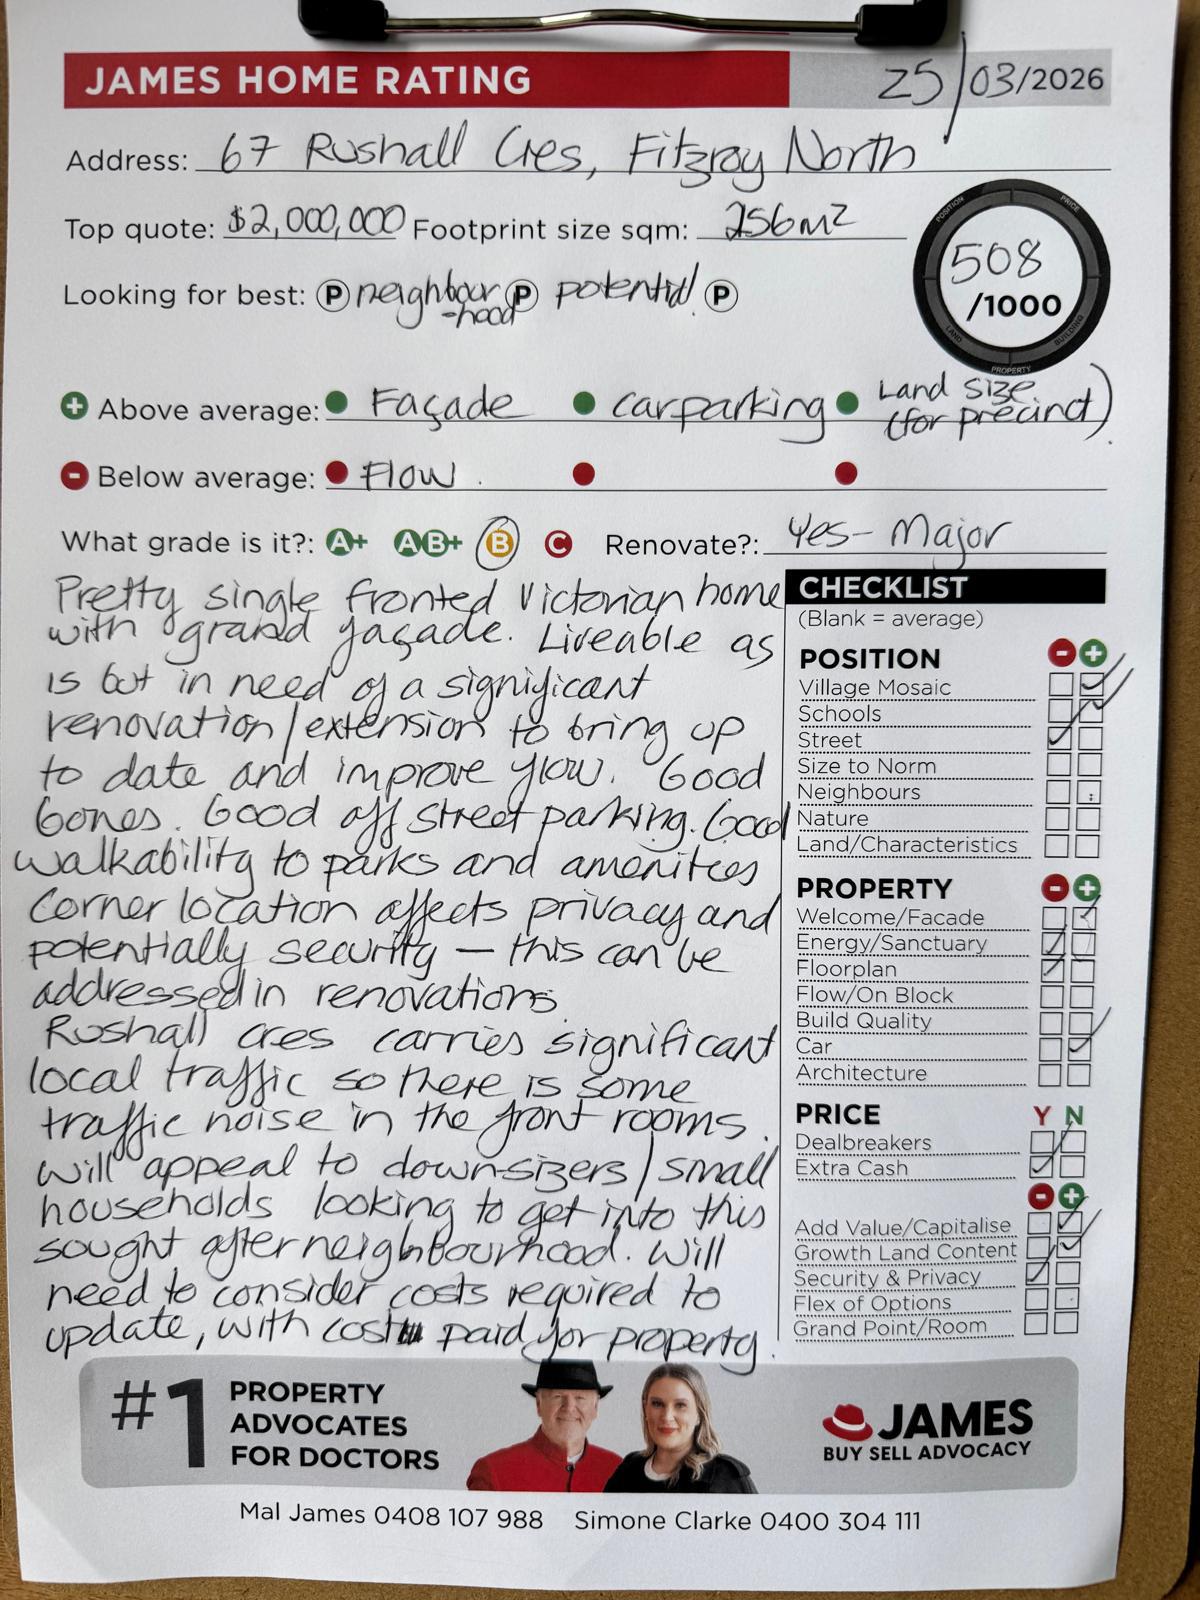 JAMES HOME RATING 25/03/2026
Address: 67 Rushall Cres, Fitzroy North
Top quote: $2,000,000 Footprint size sqm: 256m2
POSITION PRICE BUILDING PROPERTY LAND
508
/1000
Looking for best: P neighbour P potential. P
-hood
Land size
+ Above average: Façade carparking (for precinct).
- Below average: Flow.
What grade is it?: A+ AB+ B C Renovate?: Yes - Major
Pretty single fronted Victorian home
with grand façade. Liveable as
is but in need of a significant
renovation/extension to bring up
to date and improve flow. Good
bones. Good off street parking. Good
walkability to parks and amenities
Corner location affects privacy and
potentially security - this can be
addressed in renovations.
Rushall cres carries significant
local traffic so there is some
traffic noise in the front rooms.
Will appeal to down-sizers/small
households looking to get into this
sought after neighbourhood. Will
need to consider costs required to
update, with cost paid for property.
CHECKLIST
(Blank = average)
POSITION - +
Village Mosaic
Schools
Street
Size to Norm
Neighbours
Nature
Land/Characteristics
PROPERTY - +
Welcome/Facade
Energy/Sanctuary
Floorplan
Flow/On Block
Build Quality
Car
Architecture
PRICE Y N
Dealbreakers
Extra Cash
- +
Add Value/Capitalise
Growth Land Content
Security & Privacy
Flex of Options
Grand Point/Room
#1 PROPERTY
ADVOCATES
FOR DOCTORS
JAMES
BUY SELL ADVOCACY
Mal James 0408 107 988 Simone Clarke 0400 304 111